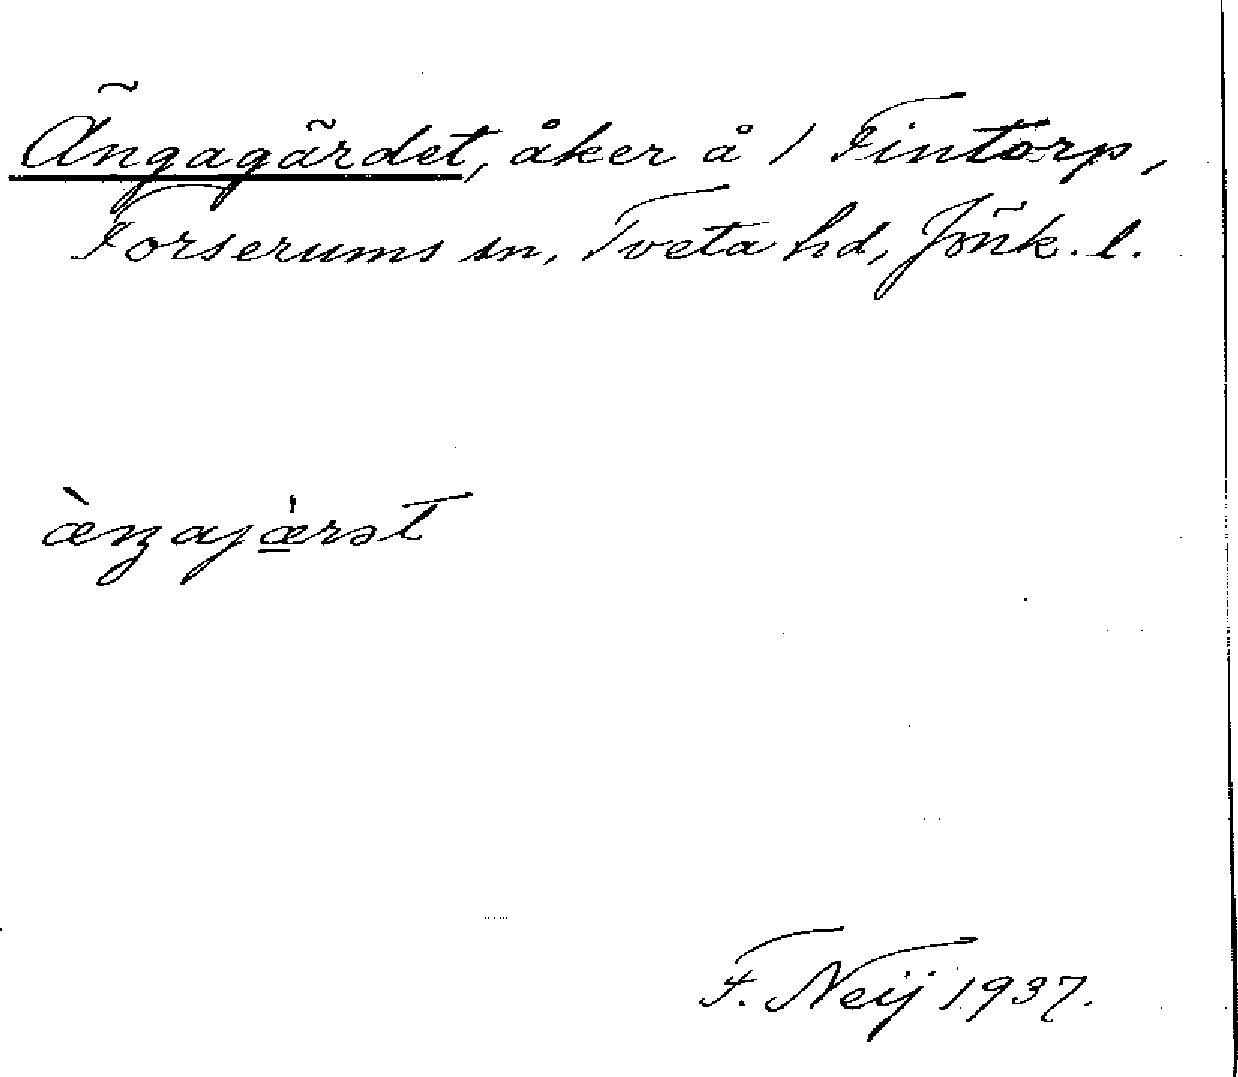 Ängagärdet, åker å 1 Fintorp,
Forserums sn, Tveta hd, Jönk. l.
æ̀ŋajæ̲̍rət
F. Neij 1937.